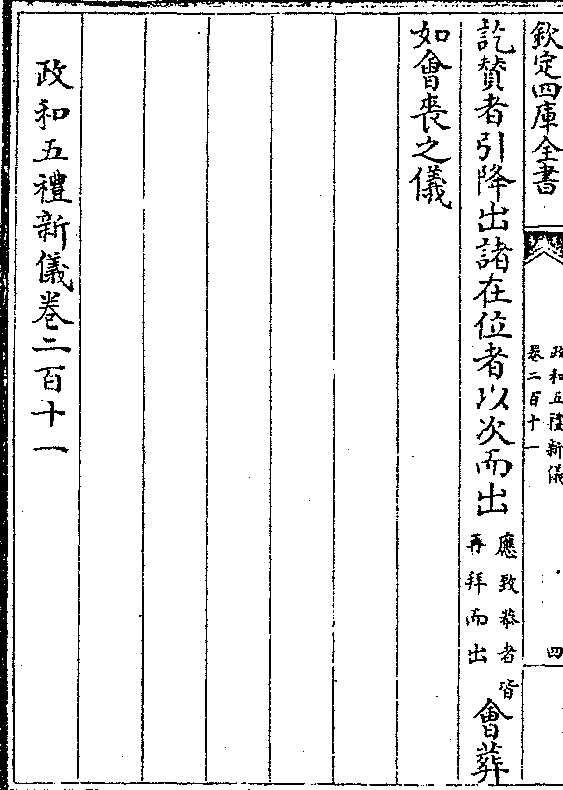 欽定四庫全書
政和五禮新儀
卷二百十一
四
訖贊者引降出諸在位者以次而出
應致恭者皆
再拜而出
會葬
如會喪之儀
政和五禮新儀卷二百十一